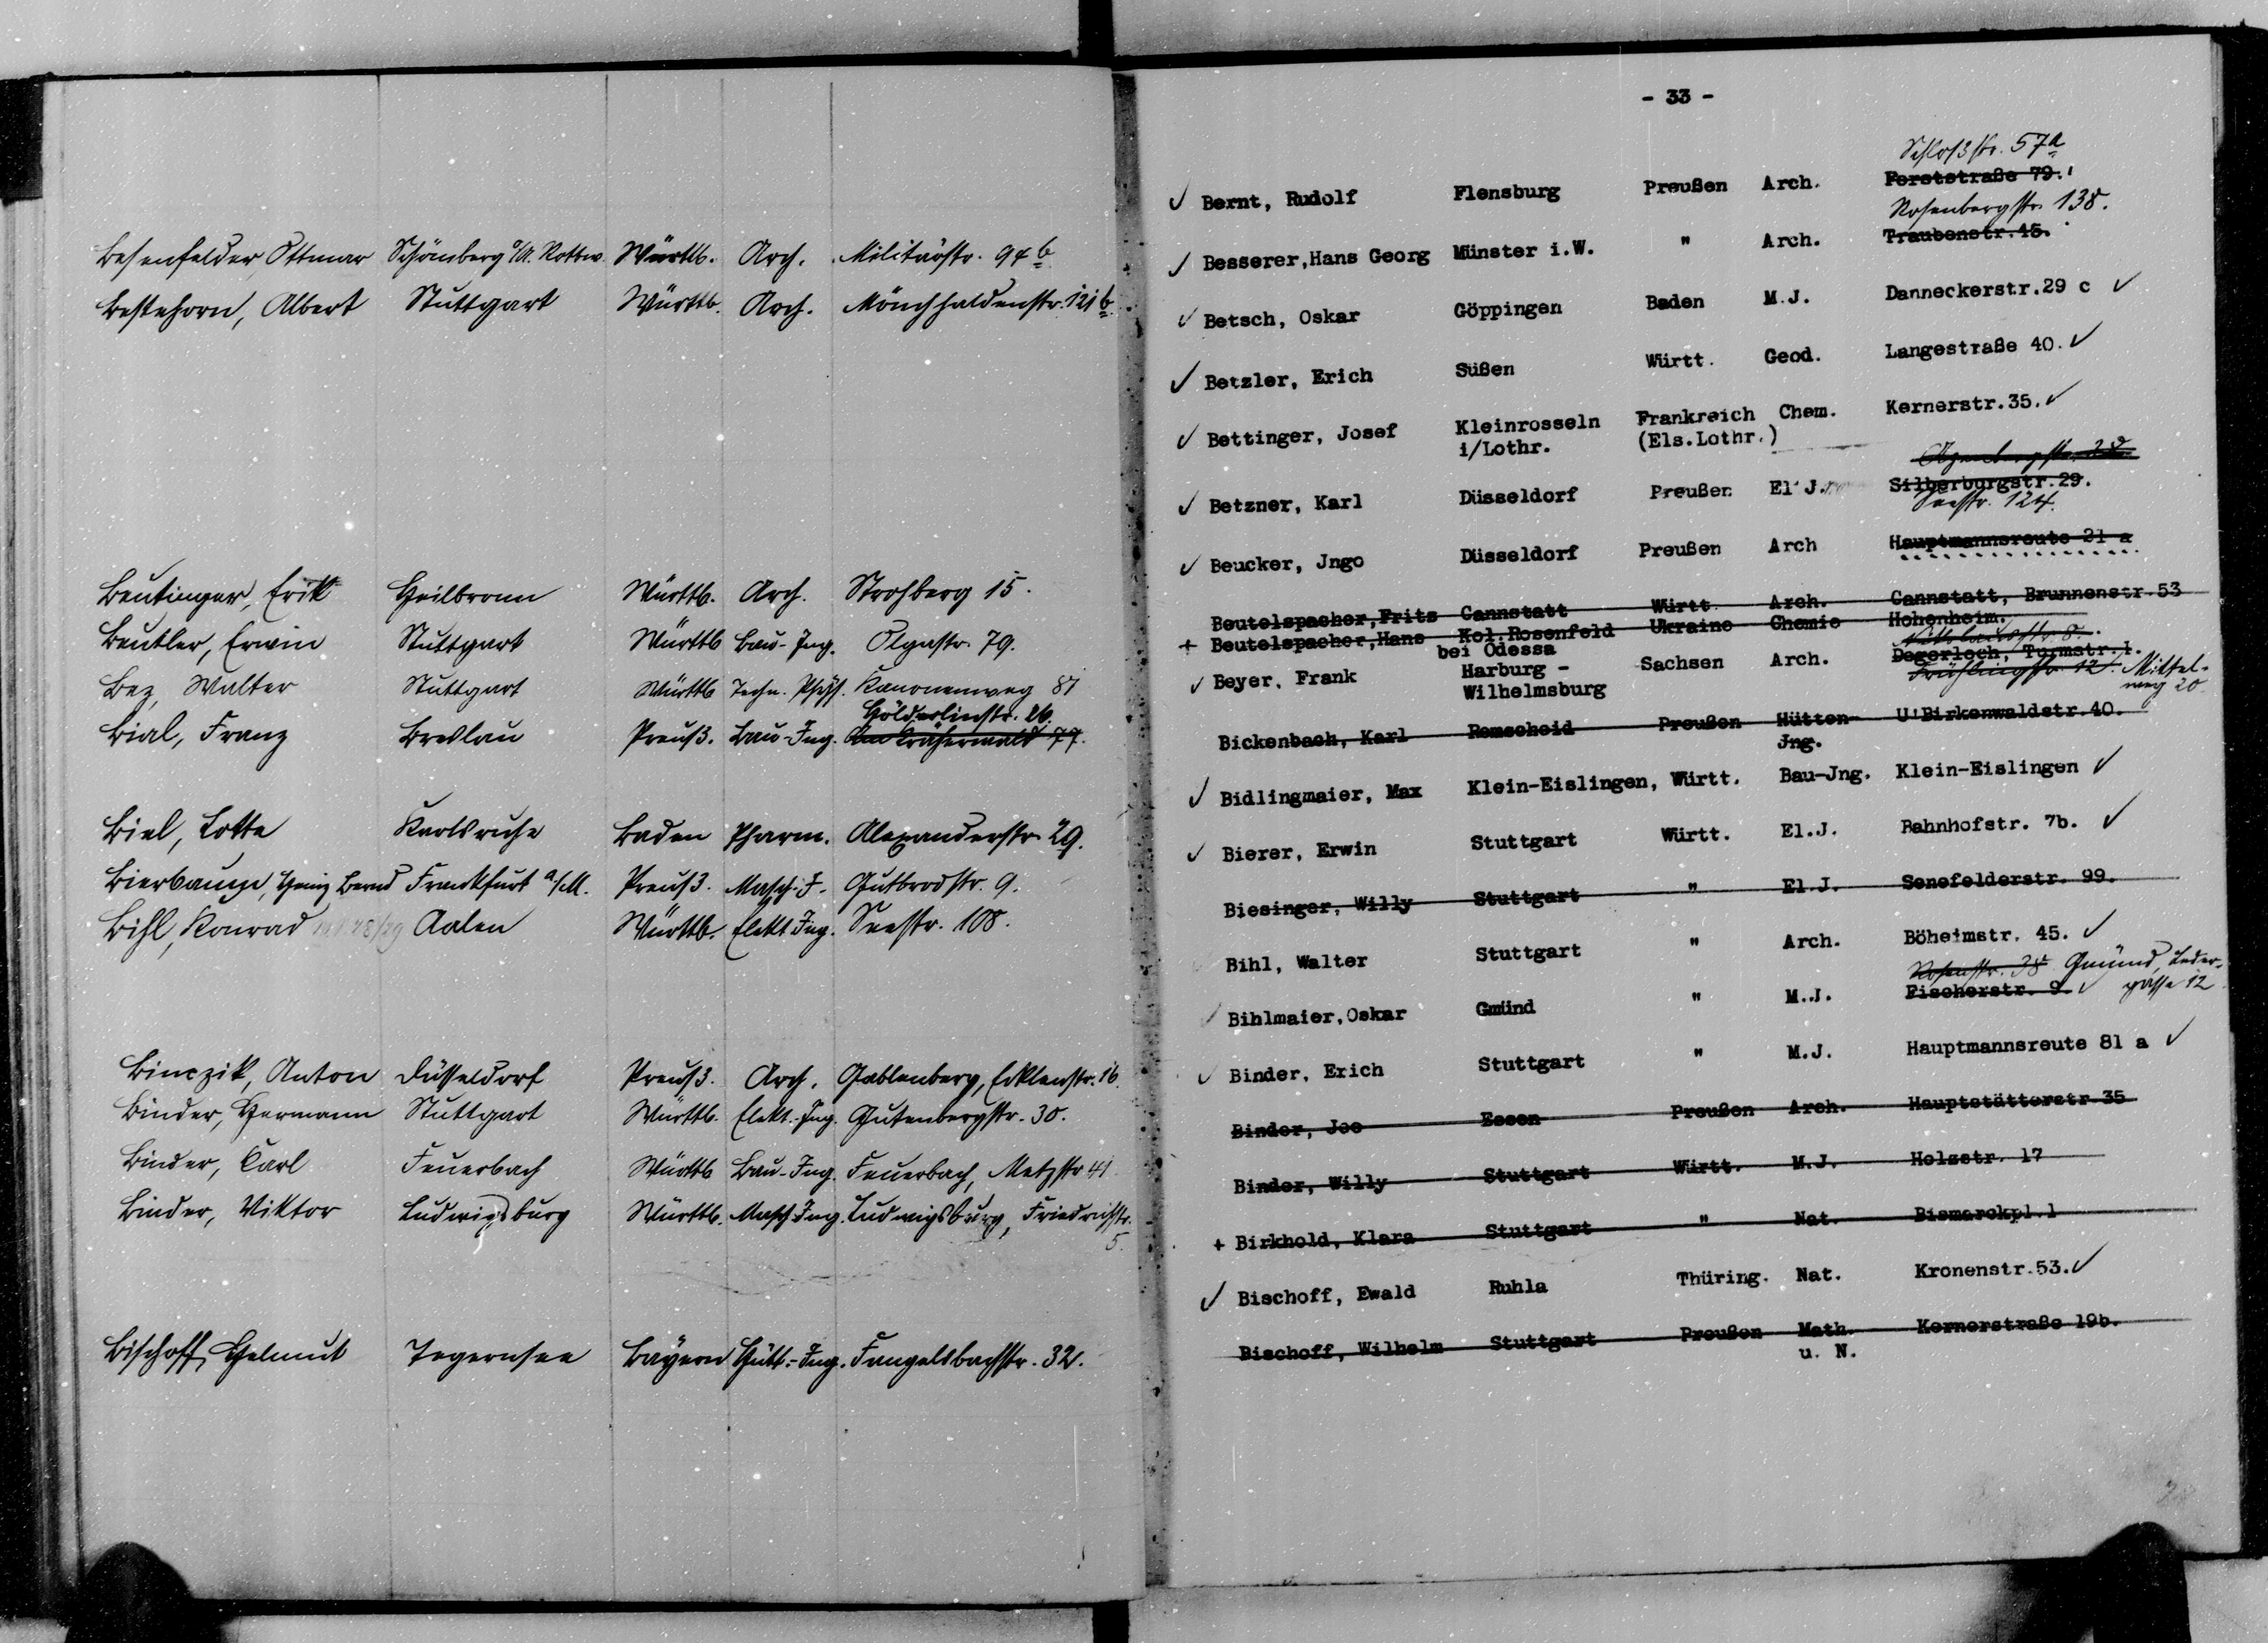 Besenfelder, Ottmar Schömberg O/A. Rottw. Württb. Arch. Militärstr. 94 b
Bestehorn, Albert Stuttgart Württb. Arch. Mönchhaldenstr. 121 b
Beutinger, Erik Heilbronn Württb. Arch. Strohberg 15.
Beutler, Erwin Stuttgart Württb Bau-Ing. Olgastr. 79.
Bez, Walter Stuttgart Württb Techn. Phys. Kanonenweg 81
Hölderlinstr. 26.
Bial, Franz Breslau Preuß. Bau-Ing. Am Kräherwald 77.
Biel, Lotte Karlsruhe Baden Pharm. Alexanderstr. 29.
Bierbaum, Heinz Bernd Frankfurt a/M. Preuß. Masch. J. Gutbrodstr. 9.
Bihl, Konrad 28/29 Aalen Württb. Elekt. Ing. Seestr. 108.
Binczik, Anton Düsseldorf Preuß. Arch. Gablenberg, Ecklenstr. 16.
Binder, Hermann Stuttgart Württb. Elekt.-Ing. Gutenbergstr. 30.
Binder, Carl Feuerbach Württb Bau-Ing. Feuerbach, Metzstr 41
Binder, Viktor Ludwigsburg Württb. Masch-Ing. Ludwigsburg, Friedrichstr.
5.
Bischoff, Helmut Tegernsee Bayern Hütt.-Ing. Fangelsbachstr. 32.
- 33 -
Schloßstr. 57a
✓ Bernt, Rudolf Flensburg Preußen Arch. Forststraße 79.
Rosenbergstr. 138.
✓ Besserer,Hans Georg Münster i.W. " Arch. Traubenstr.45.
✓ Betsch, Oskar Göppingen Baden M.J. Danneckerstr.29 c ✓
✓ Betzler, Erich Süßen Württ. Geod. Langestraße 40. ✓
✓ Bettinger, Josef Kleinrosseln Frankreich Chem. Kernerstr.35. ✓
i/Lothr. (Els.Lothr.)
✓ Betzner, Karl Düsseldorf Preußen El J. Silberburgstr.29.
Seestr. 124.
✓ Beucker, Jngo Düsseldorf Preußen Arch Hauptmannsreute 21 a
Beutelspacher,Fritz Cannstatt Württ. Arch. Cannstatt, Brunnenstr.53
+ Beutelspacher,Hans Kol.Rosenfeld Ukraine Chemie Hohenheim.
bei Odessa
✓ Beyer, Frank Harburg - Sachsen Arch. Degerloch, Turmstr.1.
Wilhelmsburg Frühlingstr. 12. Mittel-
weg 20.
Bickenbach, Karl Remscheid Preußen Hütten- U'Birkenwaldstr.40.
Jng.
✓ Bidlingmaier, Max Klein-Eislingen, Württ. Bau-Jng. Klein-Eislingen ✓
✓ Bierer, Erwin Stuttgart Württ. El.J. Bahnhofstr. 7b. ✓
Biesinger, Willy Stuttgart " El.J. Senefelderstr. 99.
Bihl, Walter Stuttgart " Arch. Böheimstr. 45. ✓
Rosenstr. 38 Gmünd, Leder-
✓ Bihlmaier,Oskar Gmünd " M.J. Fischerstr. 9. ✓ gasse 12
✓ Binder, Erich Stuttgart " M.J. Hauptmannsreute 81 a ✓
Binder, Joe Essen Preußen Arch. Hauptstätterstr 35
Binder, Willy Stuttgart Württ. M.J. Holzstr. 17
+ Birkhold, Klara Stuttgart " Nat. Bismarckpl.1
✓ Bischoff, Ewald Ruhla Thüring. Nat. Kronenstr.53. ✓
Bischoff, Wilhelm Stuttgart Preußen Math. Kernerstraße 19b.
u. N.